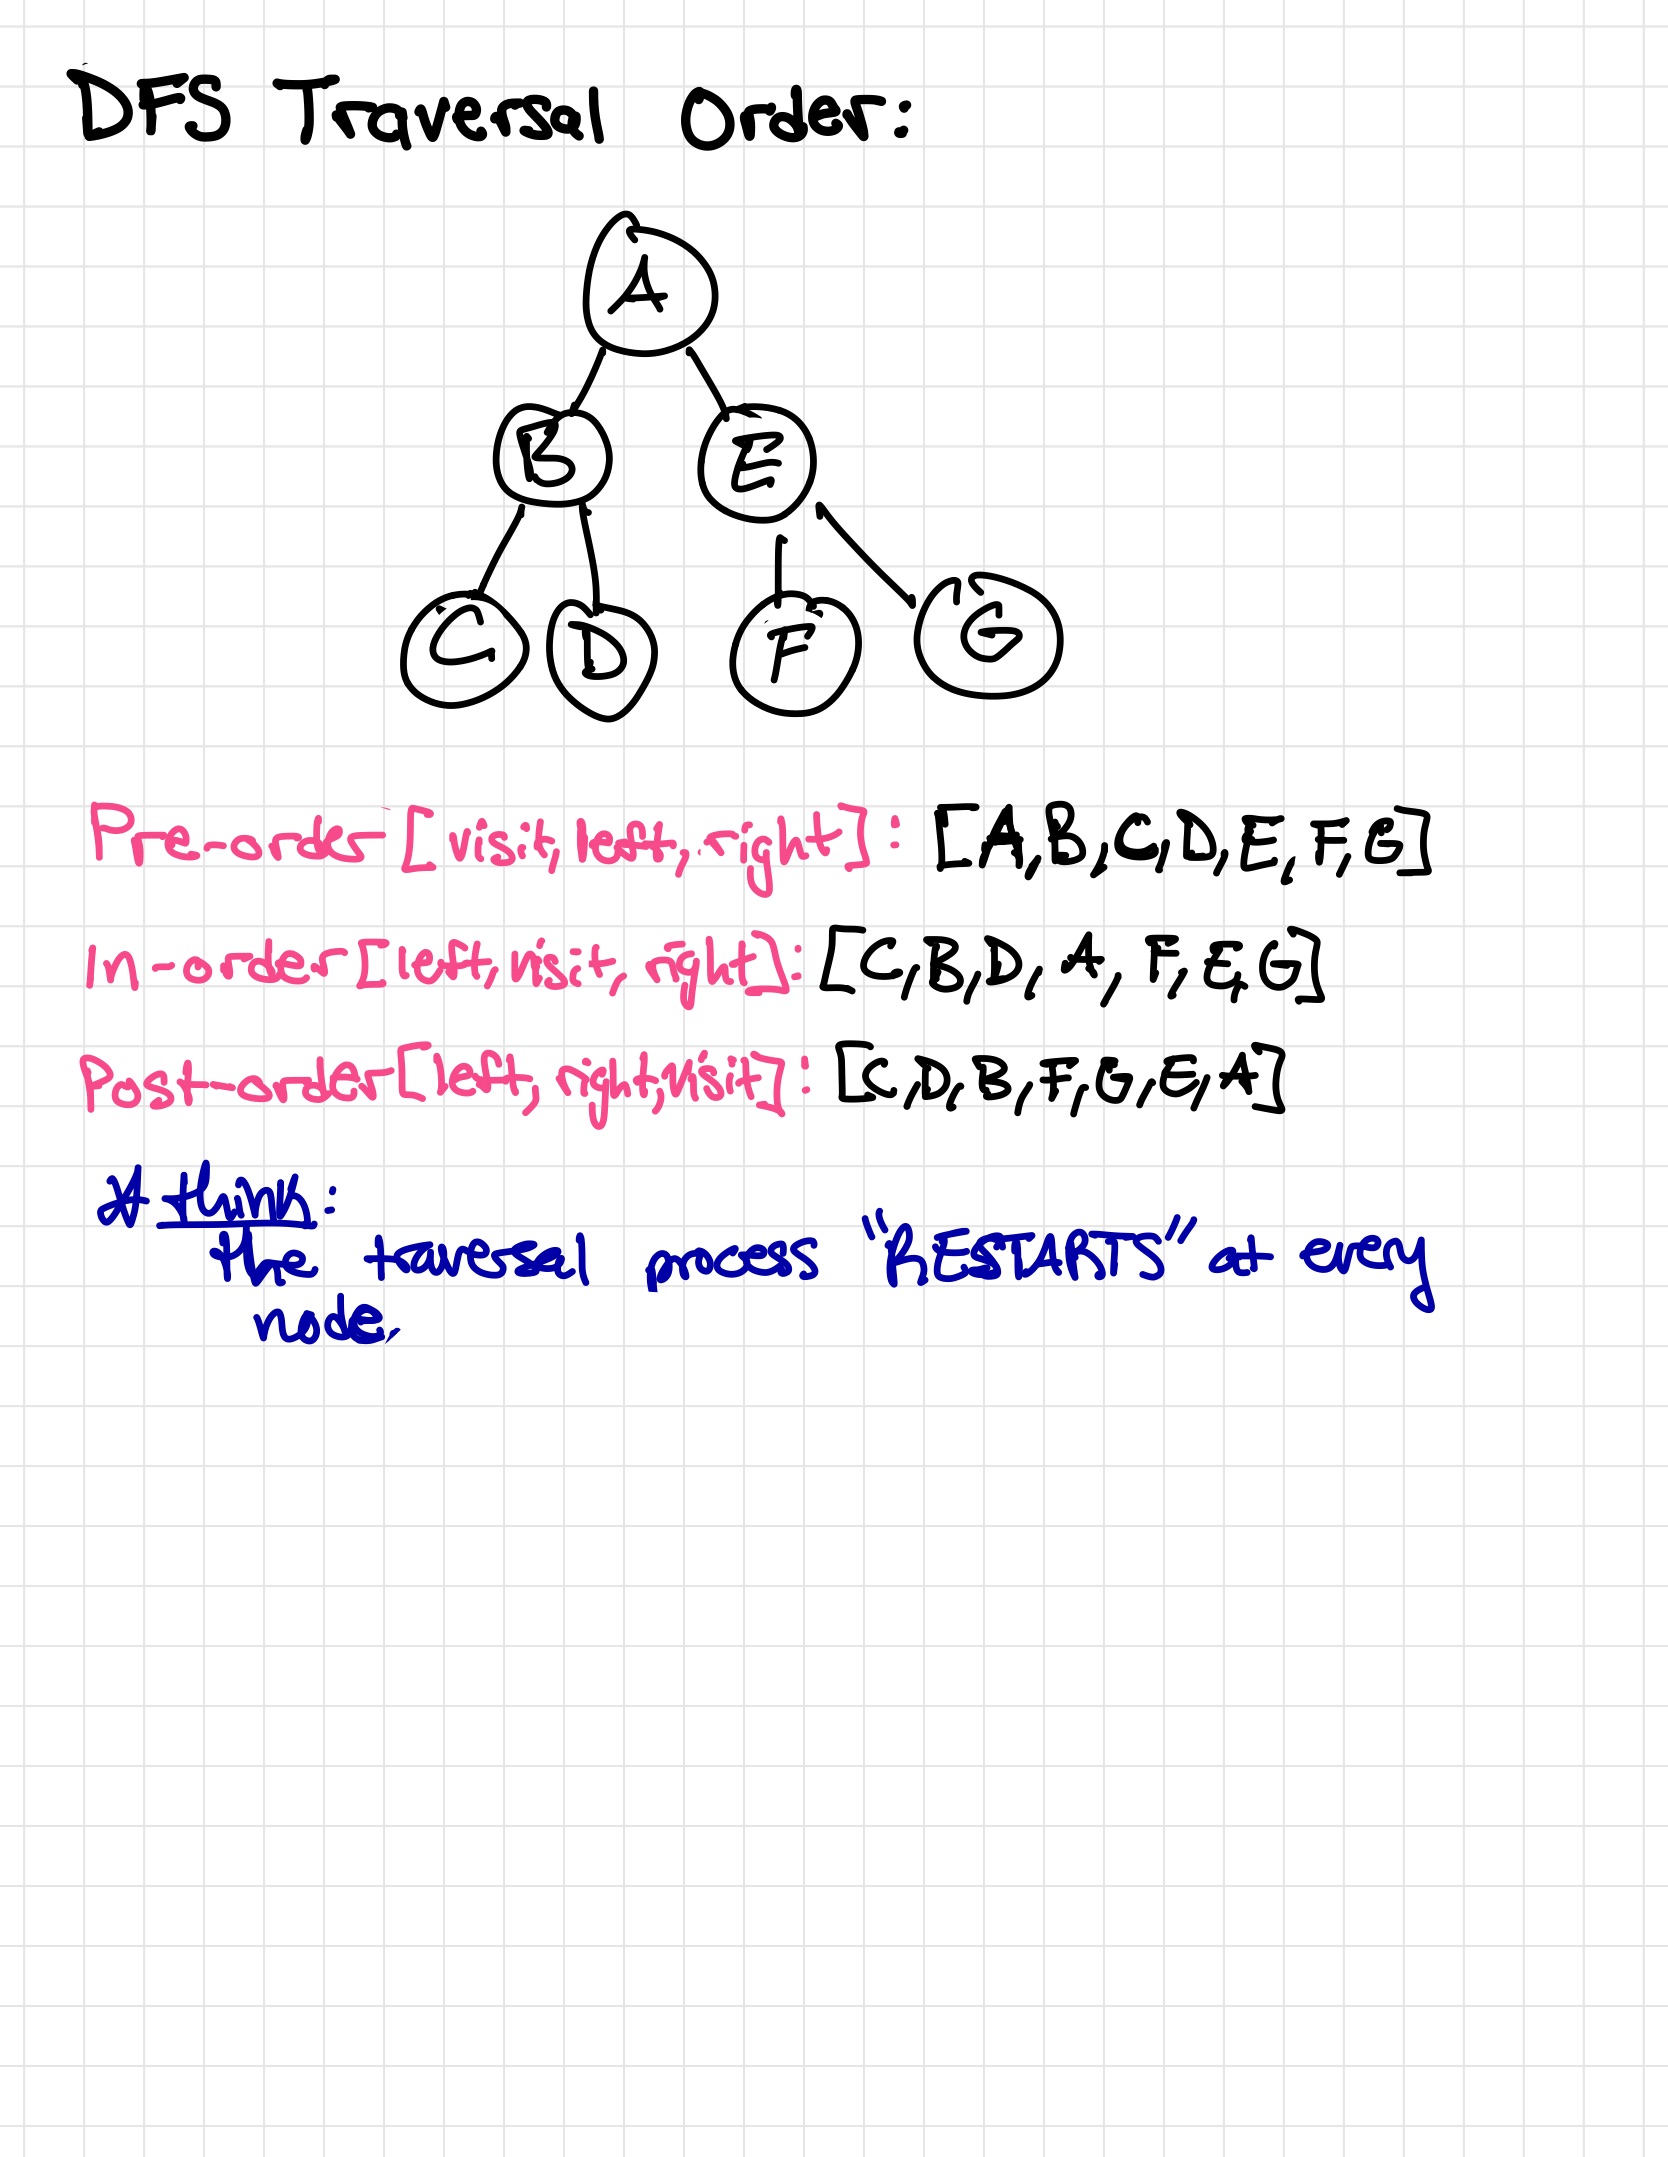 DFS Traversal Order:
A
B E
C D F G
Pre-order [visit, left, right]: [A,B,C,D,E,F,G]
In-order [left, visit, right]: [C,B,D,A,F,E,G]
Post-order [left, right, visit]: [C,D,B,F,G,E,A]
* think:
the traversal process "RESTARTS" at every
node.